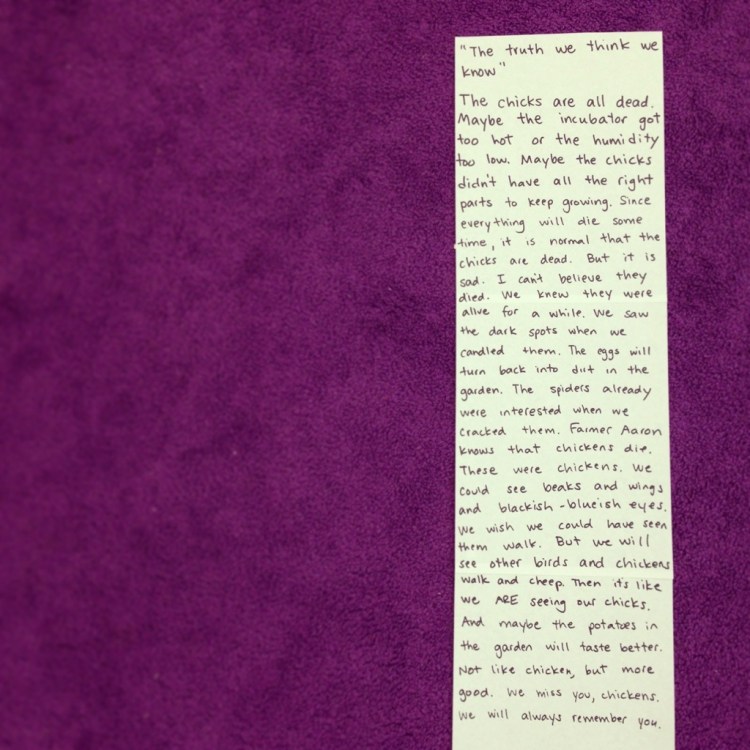 "The truth we think we
know"
The chicks are all dead.
Maybe the incubator got
too hot or the humidity
too low. Maybe the chicks
didn't have all the right
parts to keep growing. Since
everything will die some
time, it is normal that the
chicks are dead. But it is
sad. I can't believe they
died. We knew they were
alive for a while. We saw
the dark spots when we
candled them. The eggs will
turn back into dirt in the
garden. The spiders already
were interested when we
cracked them. Farmer Aaron
knows that chickens die.
These were chickens. We
could see beaks and wings
and blackish-blueish eyes.
We wish we could have seen
them walk. But we will
see other birds and chickens
walk and cheep. Then it's like
we ARE seeing our chicks.
And maybe the potatoes in
the garden will taste better.
Not like chicken, but more
good. We miss you, chickens.
We will always remember you.